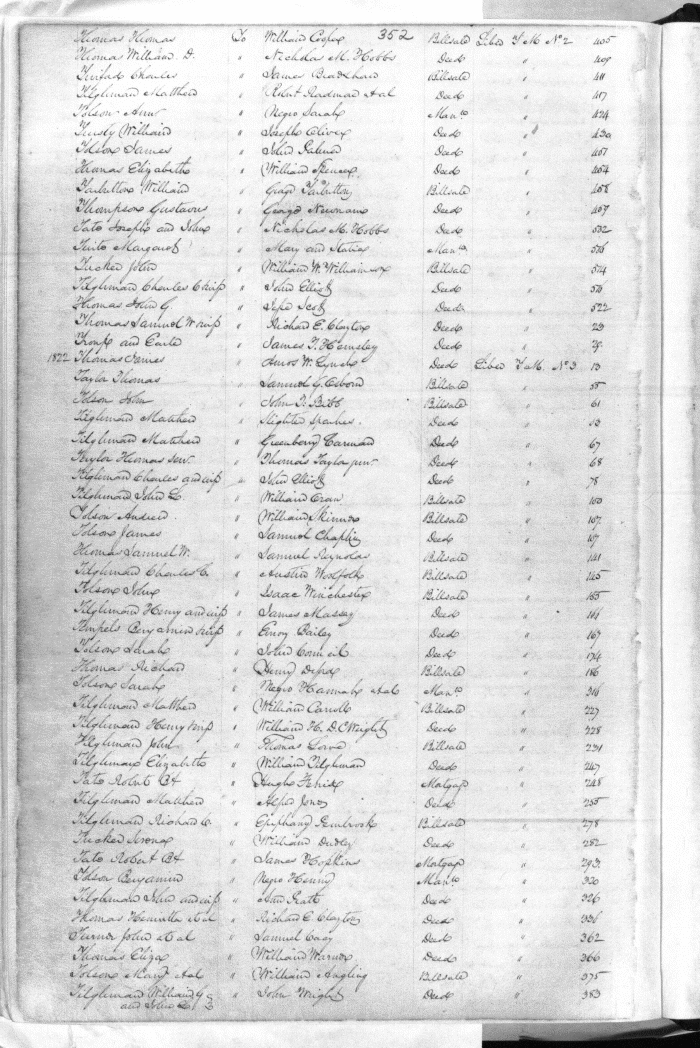 352
Thomas Thomas To William Cooper Billsale Liber T M No 2 405
Thomas William D. " Nicholas M. Hobbs Deed " 409
Charles " James Billsale " 411
Tilghman Matthew " Robert Redman et al Deed " 417
Tolson Ann " Negro Sarah Mann 424
William " Joseph Oliver Deed " 430
Tolson James " John Deed " 451
Thomas Elizabeth " William Spencer Deed " 454
Tarbutton William " George Tarbutton Billsale " 458
Thompson Gustavus " George Newnam Deed " 459
Tate Joseph and John " Nicholas M. Hobbs Deed " 532
Margaret " Mary and Mann " 536
Tucker John " William W. Williamson Billsale " 574
Tilghman Charles C & wife " John Elliott Deed " 576
Thomas John G " Scott Deed " 522
Thomas Samuel W & wife " Richard E. Clayton Deed " 23
and Earle " James T. Hemsley Deed " 29
1822 Thomas James " Amos W. Lynch Deed Liber T M. No 3 13
Taylor Thomas " Samuel G. Osborn Billsale " 55
Tolson John " John F. Bibb Billsale " 61
Tilghman Matthew " Slighter Sparkes. Deed " 63
Tilghman Matthew " Greenberry Carman Deed " 67
Taylor Thomas Senr " Thomas Taylor junr Deed " 68
Tilghman Charles and wife " John Elliott Deed " 78
Tilghman John L. " William Cran Billsale " 100
Tolson Andrew " William Skinner Billsale " 107
Tolson James " Samuel Chaplin Deed " 107
Thomas Samuel W. " Samuel Reynolds Billsale " 141
Tilghman Charles C. " Austin Woolfolk Billsale " 145
Tolson John " Isaac Winchester Billsale " 155
Tilghman Henry and wife " James Massey Deed " 161
Benjamin & wife " Emory Bailey Deed " 167
Tolson Sarah " John Council Deed " 174
Thomas Richard " Henry Billsale " 186
Tolson Sarah " Negro Hannah et al Mann " 216
Tilghman Matthew " William Carroll Billsale " 227
Tilghman Henry & wife " William H. D. C. Wright Deed " 228
Tilghman John " Thomas Billsale " 231
Tilghman Elizabeth " William Tilghman Deed " 247
Tate Robert Bt " Hugh Mortgage " 248
Tilghman Matthew " Alfred Jones Deed " 255
Tilghman Richard C. " Epiphany Pembrook Billsale " 278
Tucker " William Dudley Deed " 282
Tate Robert Bt " James Hopkins Mortgage " 293
Tolson Benjamin " Negro Henny Mann " 320
Tilghman John and wife " Ann Deed " 326
Thomas Henrietta et al " Richard E. Clayton Deed " 336
Turner John et al " Samuel Casy Deed " 362
Thomas Eliza " William Warner Deed " 366
Tolson Mary et al " William Angling Billsale " 375
Tilghman William G " John Wright Deed " 383
and John L